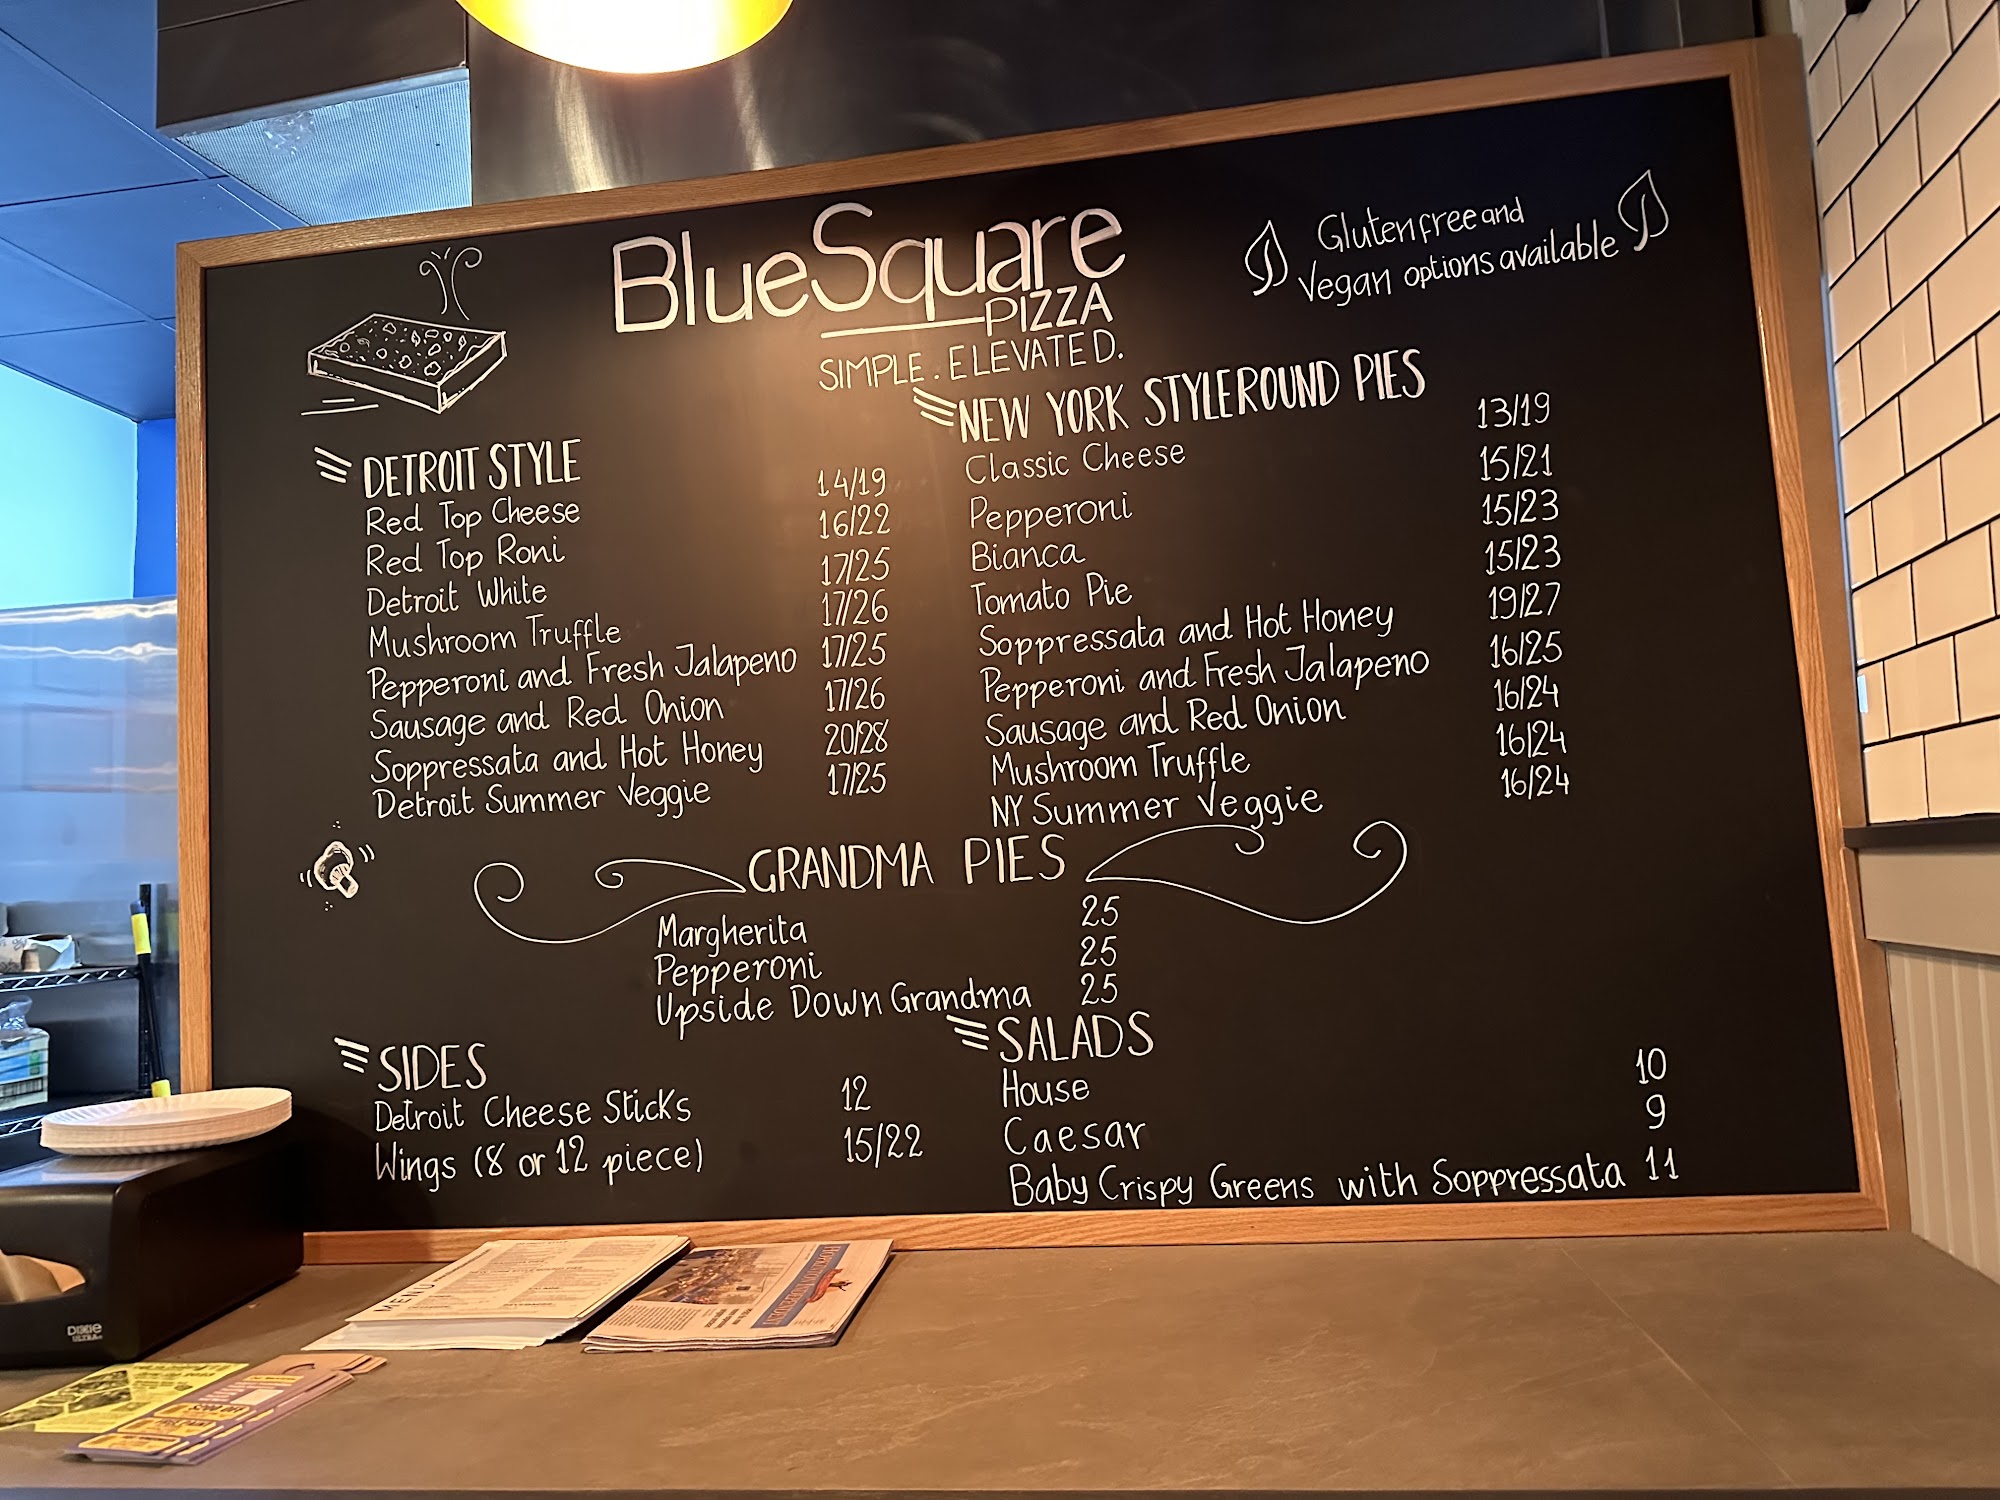 BlueSquare
PIZZA
SIMPLE. ELEVATED.
Gluten free and
Vegan options available
DETROIT STYLE
Red Top Cheese 14/19
Red Top Roni 16/22
Detroit White 17/25
Mushroom Truffle 17/26
Pepperoni and Fresh Jalapeno 17/25
Sausage and Red Onion 17/26
Soppressata and Hot Honey 20/28
Detroit Summer Veggie 17/25
NEW YORK STYLE ROUND PIES
Classic Cheese 13/19
Pepperoni 15/21
Bianca 15/23
Tomato Pie 15/23
Soppressata and Hot Honey 19/27
Pepperoni and Fresh Jalapeno 16/25
Sausage and Red Onion 16/24
Mushroom Truffle 16/24
NY Summer Veggie 16/24
GRANDMA PIES
Margherita 25
Pepperoni 25
Upside Down Grandma 25
SIDES
Detroit Cheese Sticks 12
Wings (8 or 12 piece) 15/22
SALADS
House 10
Caesar 9
Baby Crispy Greens with Soppressata 11
MENU
DIXIE
ULTRA